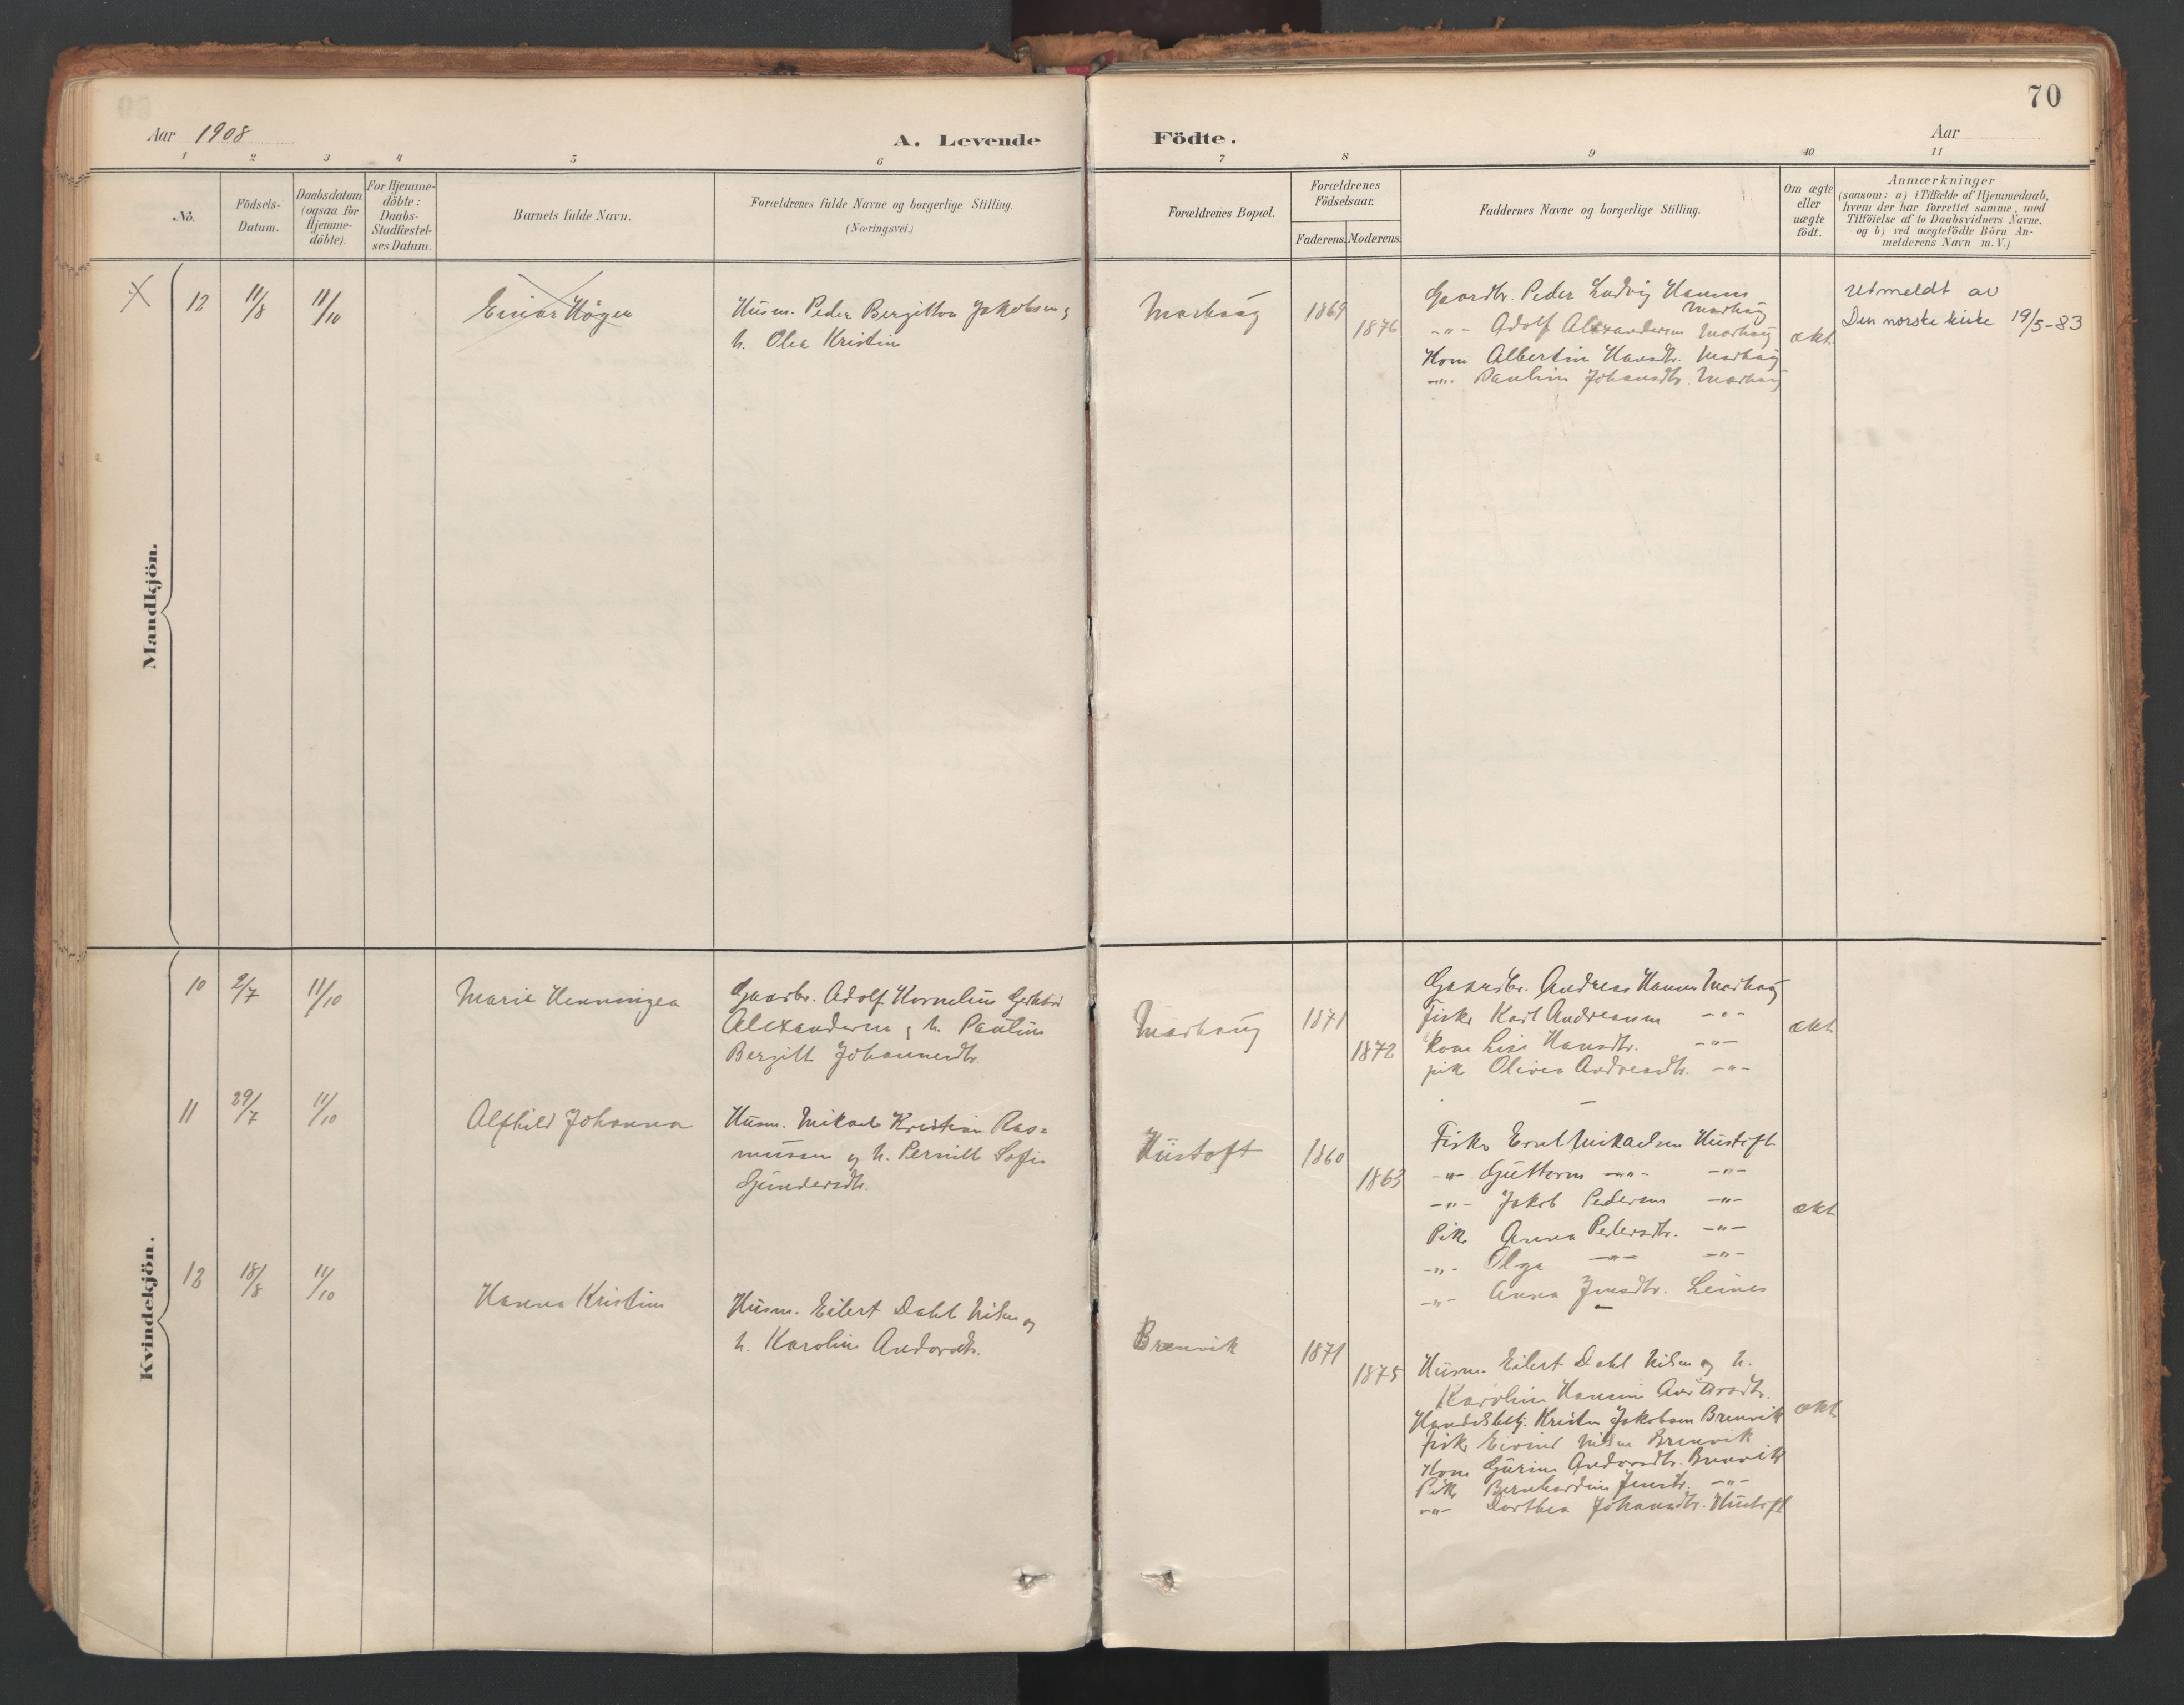 70
Aar 1908
A. Levende Födte.
Aar
1 2 3 4 5 6 7 8 9 10 11
No.
Födsels-
Datum.
Daabsdatum
(ogsaa for
Hjemme-
döbte).
For Hjemme-
döbte:
Daabs-
Stadfæstel-
ses Datum.
Barnets fulde Navn.
Forældrenes fulde Navne og borgerlige Stilling.
(Næringsvei.)
Forældrenes Bopæl.
Forældrenes
Födselsaar.
Faderens. Moderens.
Faddernes Navne og borgerlige Stilling.
Om ægte
eller
uægte
födt.
Anmærkninger
(saasom: a) i Tilfælde af Hjemmedaab,
hvem der har forrettet samme, med
Tilföielse af to Daabsvidners Navne.
og b) ved uægtefödte Börn An-
melderens Navn m. V.)
Mandkjön.
X 12 11/8 11/10
Einar Högen
Husm. Peder Bergitton Jakobsen
h. Olea Kristin
Marhaug
1869
1876
Gaardbr. Peder Ludvig Hansen
Marhaug
-"- Adolf Alexandersen Marhaug
Kone Albertin Hansdtr. Marhaug
-"- Paulin Johansdtr. Marhaug
ekt
Utmeldt av
Den norske kirke 19/5-83
Kvindekjön.
10 2/7 11/10
Marie Henningea
Gaardbr. Adolf Kornelius
Alexandersen h. Paulin
Bergitt Johannesdtr.
Marhaug
1871
1872
Gaardbr. Andreas Hansen Marhaug
Fisker Karl Andreassen -"-
Kone Lise Hansdtr. -"-
pike Olivia Andreasdtr. -"-
ekt
11 29/7 11/10
Alfhild Johanna
Husm. Mikael Kristian Ras=
mussen og h. Pernille Sofie
Gundersdtr.
Hustoft
1860
1863
Fisker Mikaelsen Hustoft
-"- Guttorm -"- -"-
-"- Jakob Pedersen -"-
Pike Anna Pedersdtr. -"-
-"- Olga -"- -"-
-"- Anna Jensdtr. Leines
ekt
12 18/8 11/10
Hanna Kristine
Husm. Eilert Dahl Nilsen og
h. Karoline Andorsdtr.
Brenvik
1871
1875
Husm. Eilert Dahl Nilsen og h.
Karoline Hansine Andorsdtr.
Handelsbetj. Kristen Jakobsen Brenvik
Fisker Eivind Nilsen Brenvik
Kone Gurine Andorsdtr. Brenvik
Pike Bernhardine Jensdtr. -"-
-"- Dorthea Johansdtr. Hustoft
ekt